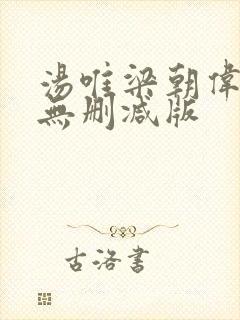 湯唯梁朝偉
無刪減版
古洛書